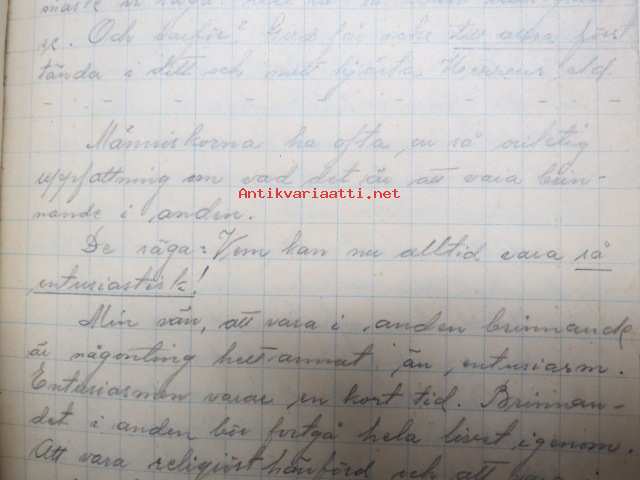 måste vi säga:
se. Och varför? Gud får icke till allra först
tända i ditt och mitt hjärta Herrens eld.
- - - - - - - - - -
Människorna ha ofta en så oriktig
uppfattning om vad det är att vara brin-
Antikvariaatti.net
nande i anden.
De säga: Vem kan nu alltid vara så
entusiastisk!
Min vän, att vara i anden brinnande
är någonting helt annat än entusiasm.
Entusiasmen varar en kort tid. Brinnan-
det i anden bör fortgå hela livet igenom.
Att vara religiöst hänförd och att vara i